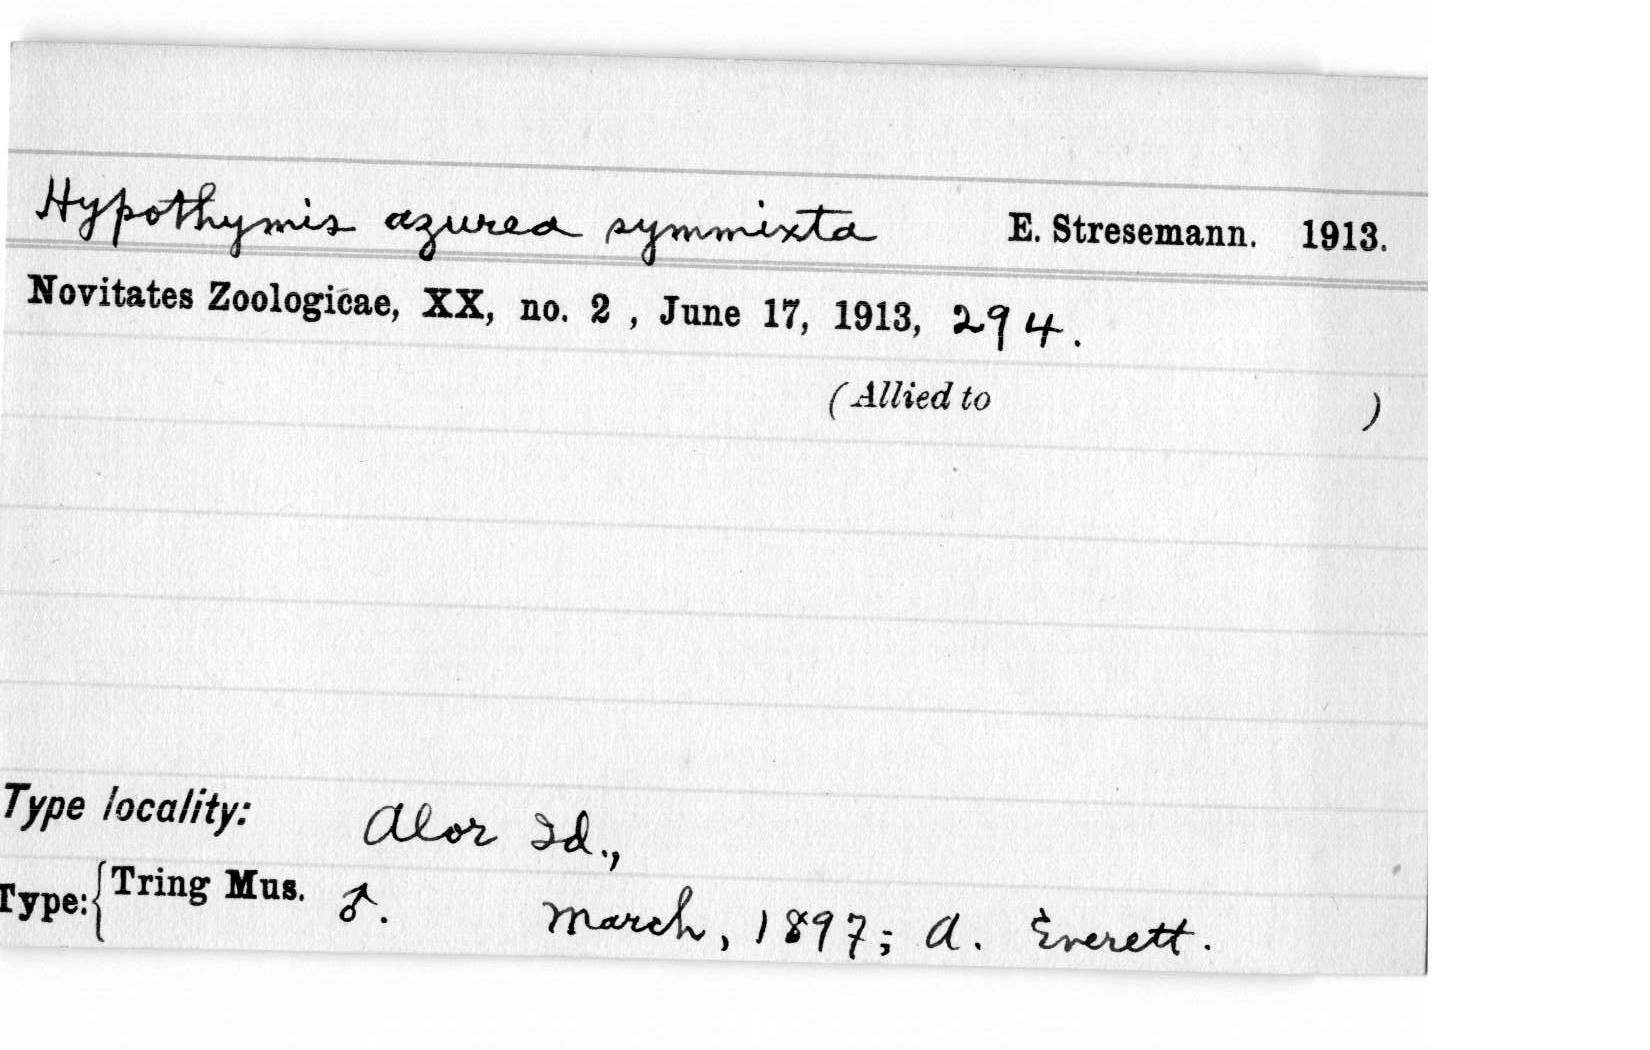 Hypothymis azurea symmixta E. Stresemann. 1913.
Novitates Zoologicae, XX, no. 2 , June 17, 1913, 294.
(Allied to )
Type locality: Alor Id.,
Type: { Tring Mus. ♂. March, 1897; A. Everett.